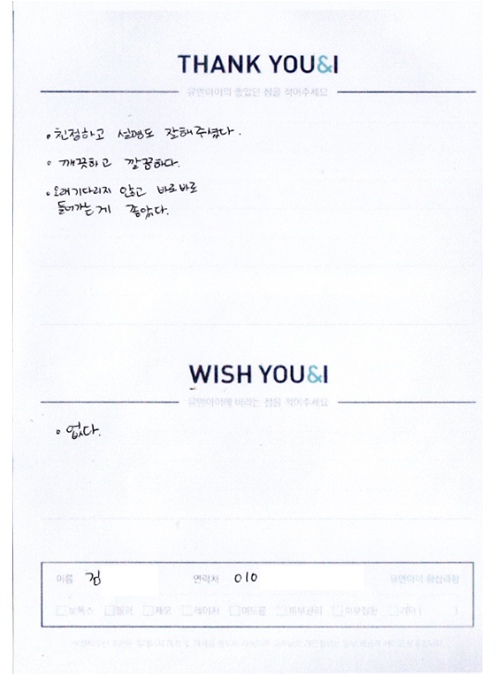 THANK YOU&I
유앤아이의 좋았던 점을 적어주세요
• 친절하고 설명도 잘해주셨다.
• 깨끗하고 깔끔하다.
• 오래기다리지 않고 바로바로
들어가는게 좋았다.
WISH YOU&I
유앤아이에 바라는 점을 적어주세요
• 없다.
이름 김 연락처 010 유앤아이 관심과목
□보톡스 □필러 □제모 □레이저 □여드름 □피부관리 □기타 ( )